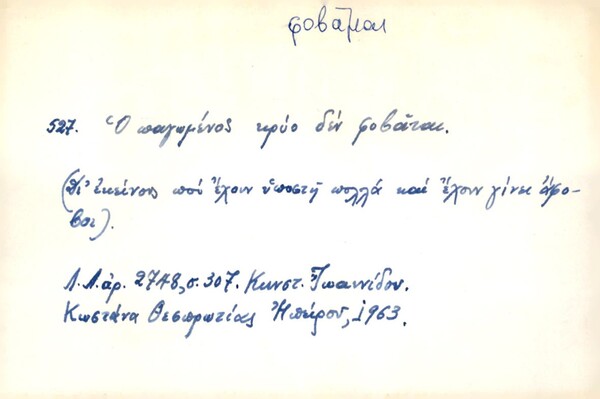 φοβᾶμαι
527. Ὁ παγωμένος κρύο δέν φοβᾶται.
(Δι' ἐκείνους πού ἔχουν ὑποστῆ πολλά καί ἔχουν γίνει ἄφο-
βοι).
Λ.Λ.ἀρ. 2748, σ. 307. Κωνστ. Ἰωαννίδου.
Κωστάνα Θεσπρωτίας Ἠπείρου, 1963.